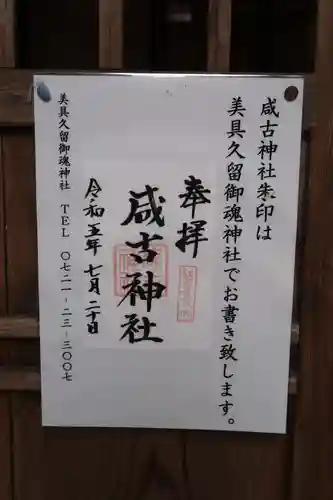 咸古神社朱印は
美具久留御魂神社でお書き致します。
奉拝
咸古神社
令和五年七月二十日
美具久留御魂神社　ＴＥＬ　〇七二一－二三－三〇〇七